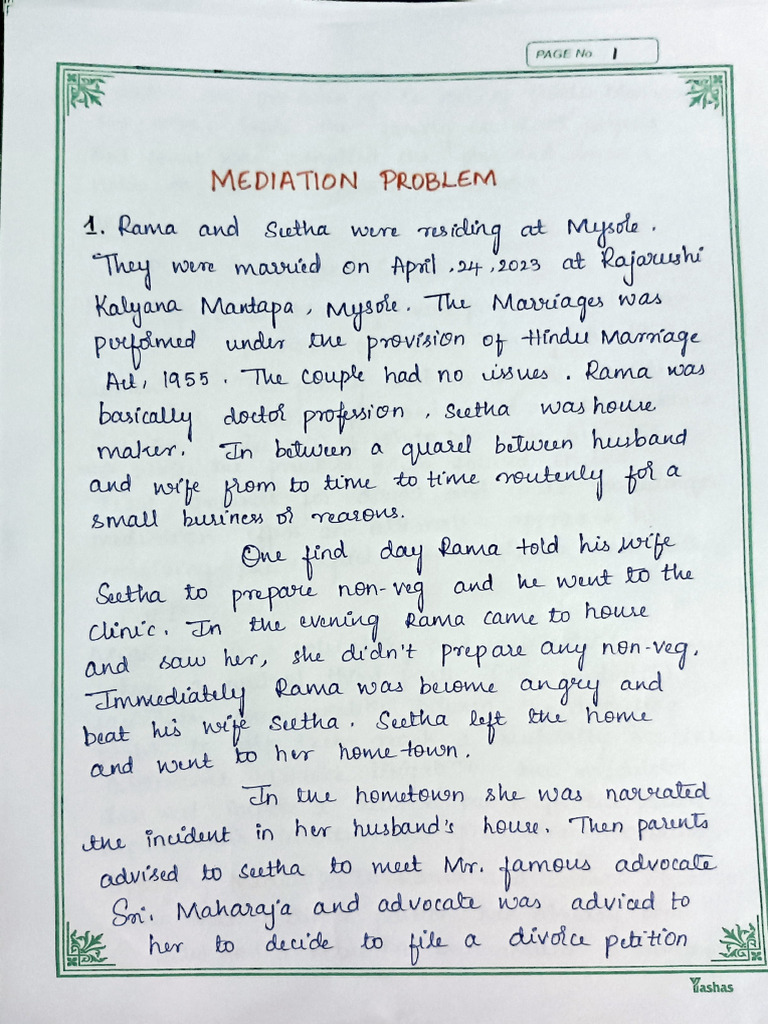 PAGE No. 1
MEDIATION PROBLEM
1. Rama and Seetha were residing at Mysore.
They were married on April, 24, 2023 at Rajarushi
Kalyana Mantapa, Mysore. The Marriages was
performed under the provision of Hindu Marriage
Act, 1955. The couple had no issues. Rama was
basically doctor profession, Seetha was house
maker. In between a quarel between husband
and wife from to time to time routenly for a
small business or reasons.
One find day Rama told his wife
Seetha to prepare non-veg and he went to the
clinic. In the evening Rama came to house
and saw her, she didn't prepare any non-veg.
Immediately Rama was become angry and
beat his wife Seetha. Seetha left the home
and went to her home-town.
In the hometown she was narrated
the incident in her husband's house. Then parents
advised to seetha to meet Mr. famous advocate
Sri. Maharaja and advocate was adviced to
her to decide to file a divorce petition
Yashas